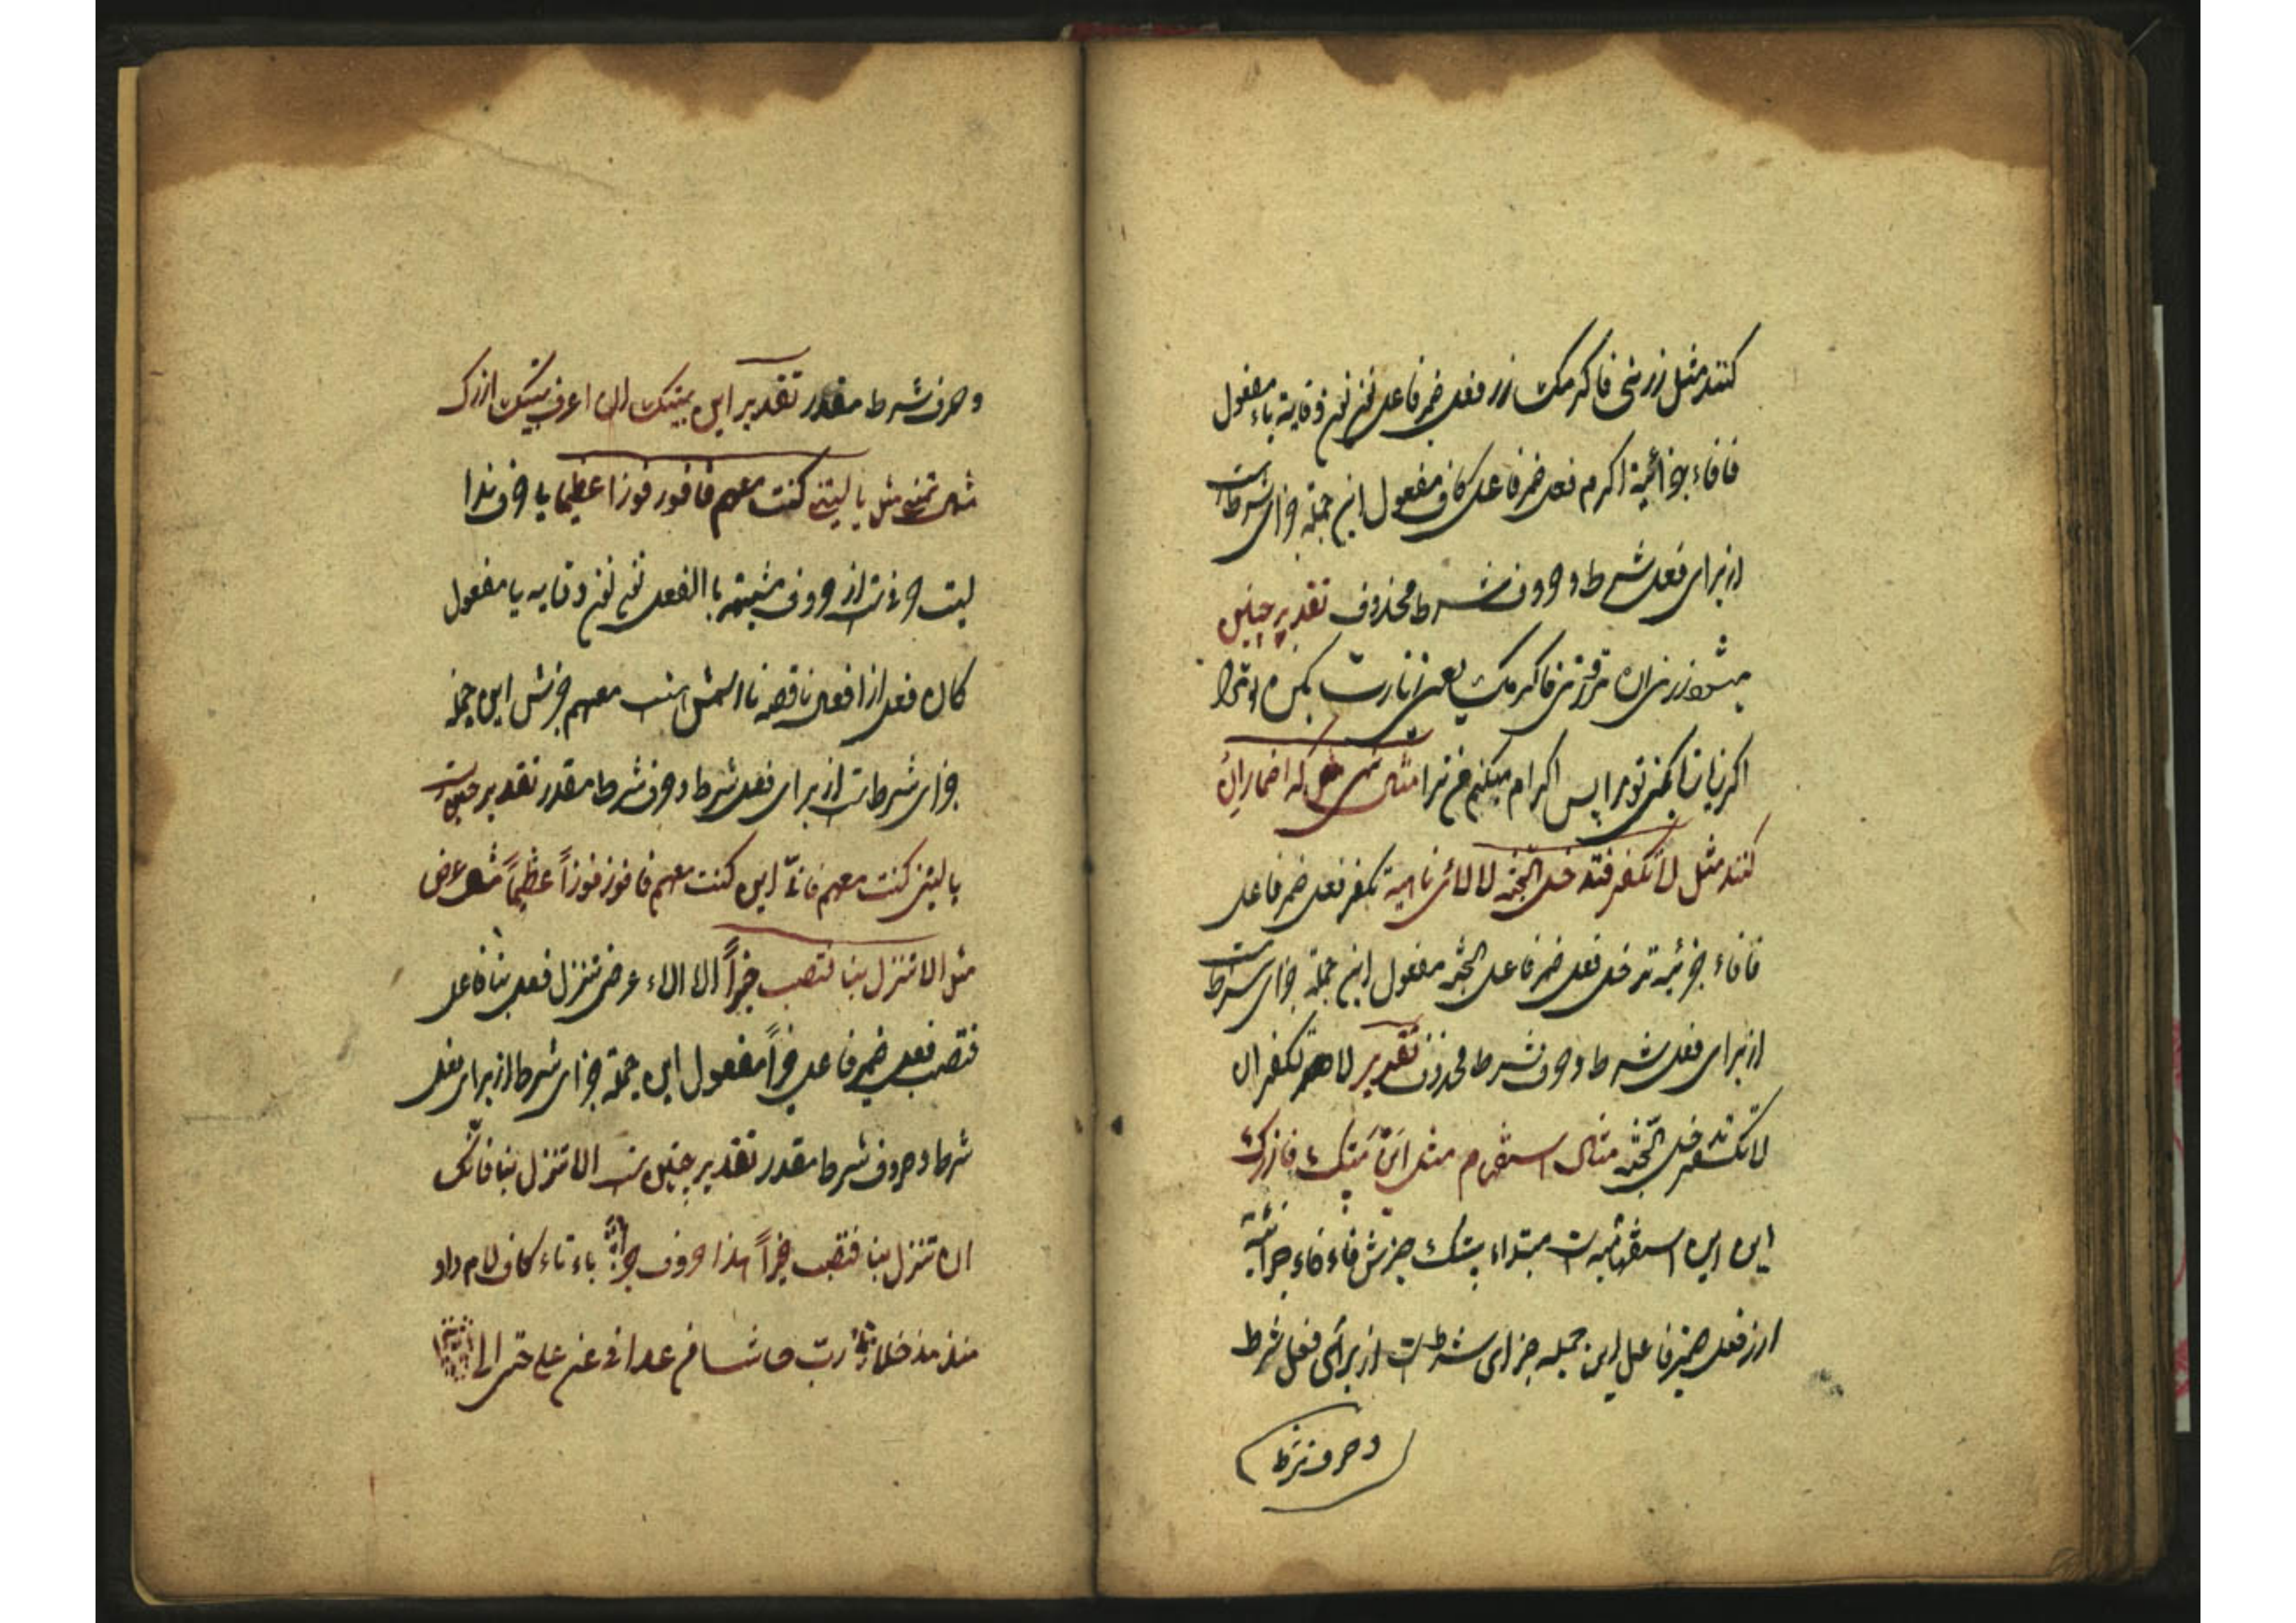 کنند مثل زرنی فاکرمک زر فعل ضمیر فاعل نون نون وقایة یاء مفعول
فا فاء جزائیة اکرم فعل ضمیر فاعل کاف مفعول این جملة جزای شرطست
از برای فعل شرط و حروف شرط محذوف تقدیر چنین
میشود زرنی ان تزرنی فاکرمک یعنی زیارت بکن مرا
اکر زیارت کنی تو مرا پس اکرام میکنم من ترا مثال نهی که اضمار ان
کنند مثل لا تکفر فتدخل الجنة لا لائی ناهیة تکفر فعل ضمیر فاعل
فا فاء جزئیه تدخل فعل ضمیر فاعل الجنة مفعول این جملة جزای شرطست
از برای فعل شرط و حرف شرط محذوف تقدیر لا تکفر ان
لا تکفر تدخل الجنة مثال استفهام مثل این بیتک فازرک
این این استفهامیه است مبتداء بیتک خبرش فا فاء جزائیه
ازر فعل ضمیر فاعل این جمله جزای شرطست از برای فعل شرط
و حرف شرط
و حرف شرط مقدر تقدیر این بیتک ان اعرف بیتک ازرک
مثال تمنی مثل یا لیتنی کنت معهم فافوز فوزا عظیما یا حرف ندا
لیت حرفست از حروف مشبهة باالفعل نون نون وقایه یا مفعول
کان فعل از افعال ناقصه تا اسمش است معهم خبرش این جملة
جزای شرطست از برای فعل شرط و حرف شرط مقدر تقدیر چنین است
یا لیتنی کنت معهم فان کنت معهم فافوز فوزاً عظیماً مثال عرض
مثل الا تنزل بنا فتصب خیراً الا الاء عرض تنزل فعل بنا فاعل
فتصب فعل ضمیر فاعل خیراً مفعول این جملة جزای شرط از برای فعل
شرط و حروف شرط مقدر تقدیر چنین است الا تنزل بنا فانک
ان تنزل بنا فتصب خیراً هذا حروف جرّ باء تاء کاف لام واو
منذ مذ خلا ربّ حاشا من عدا فی عن علی حتی الی